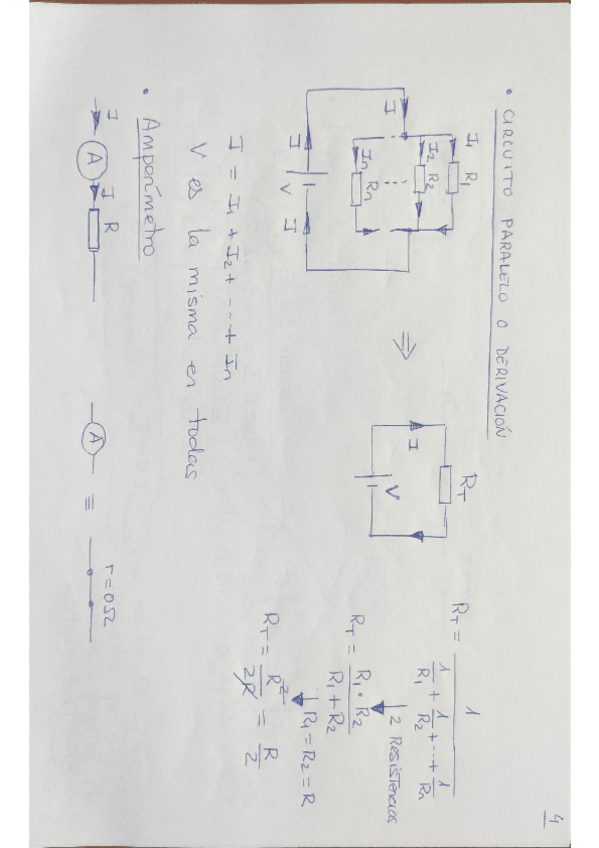 4
• CIRCUITO PARALELO O DERIVACIÓN
I
I1 R1
I2 R2
In Rn
I V I
⇒
RT
I
V
RT = 1 / (1/R1 + 1/R2 + ... + 1/Rn)
2 Resistencias
RT = R1 · R2 / (R1 + R2)
R1 = R2 = R
RT = R² / 2R = R / 2
I = I1 + I2 + ... + In
V es la misma en todas
• Amperímetro
I A I R
A ≡ r = 0Ω